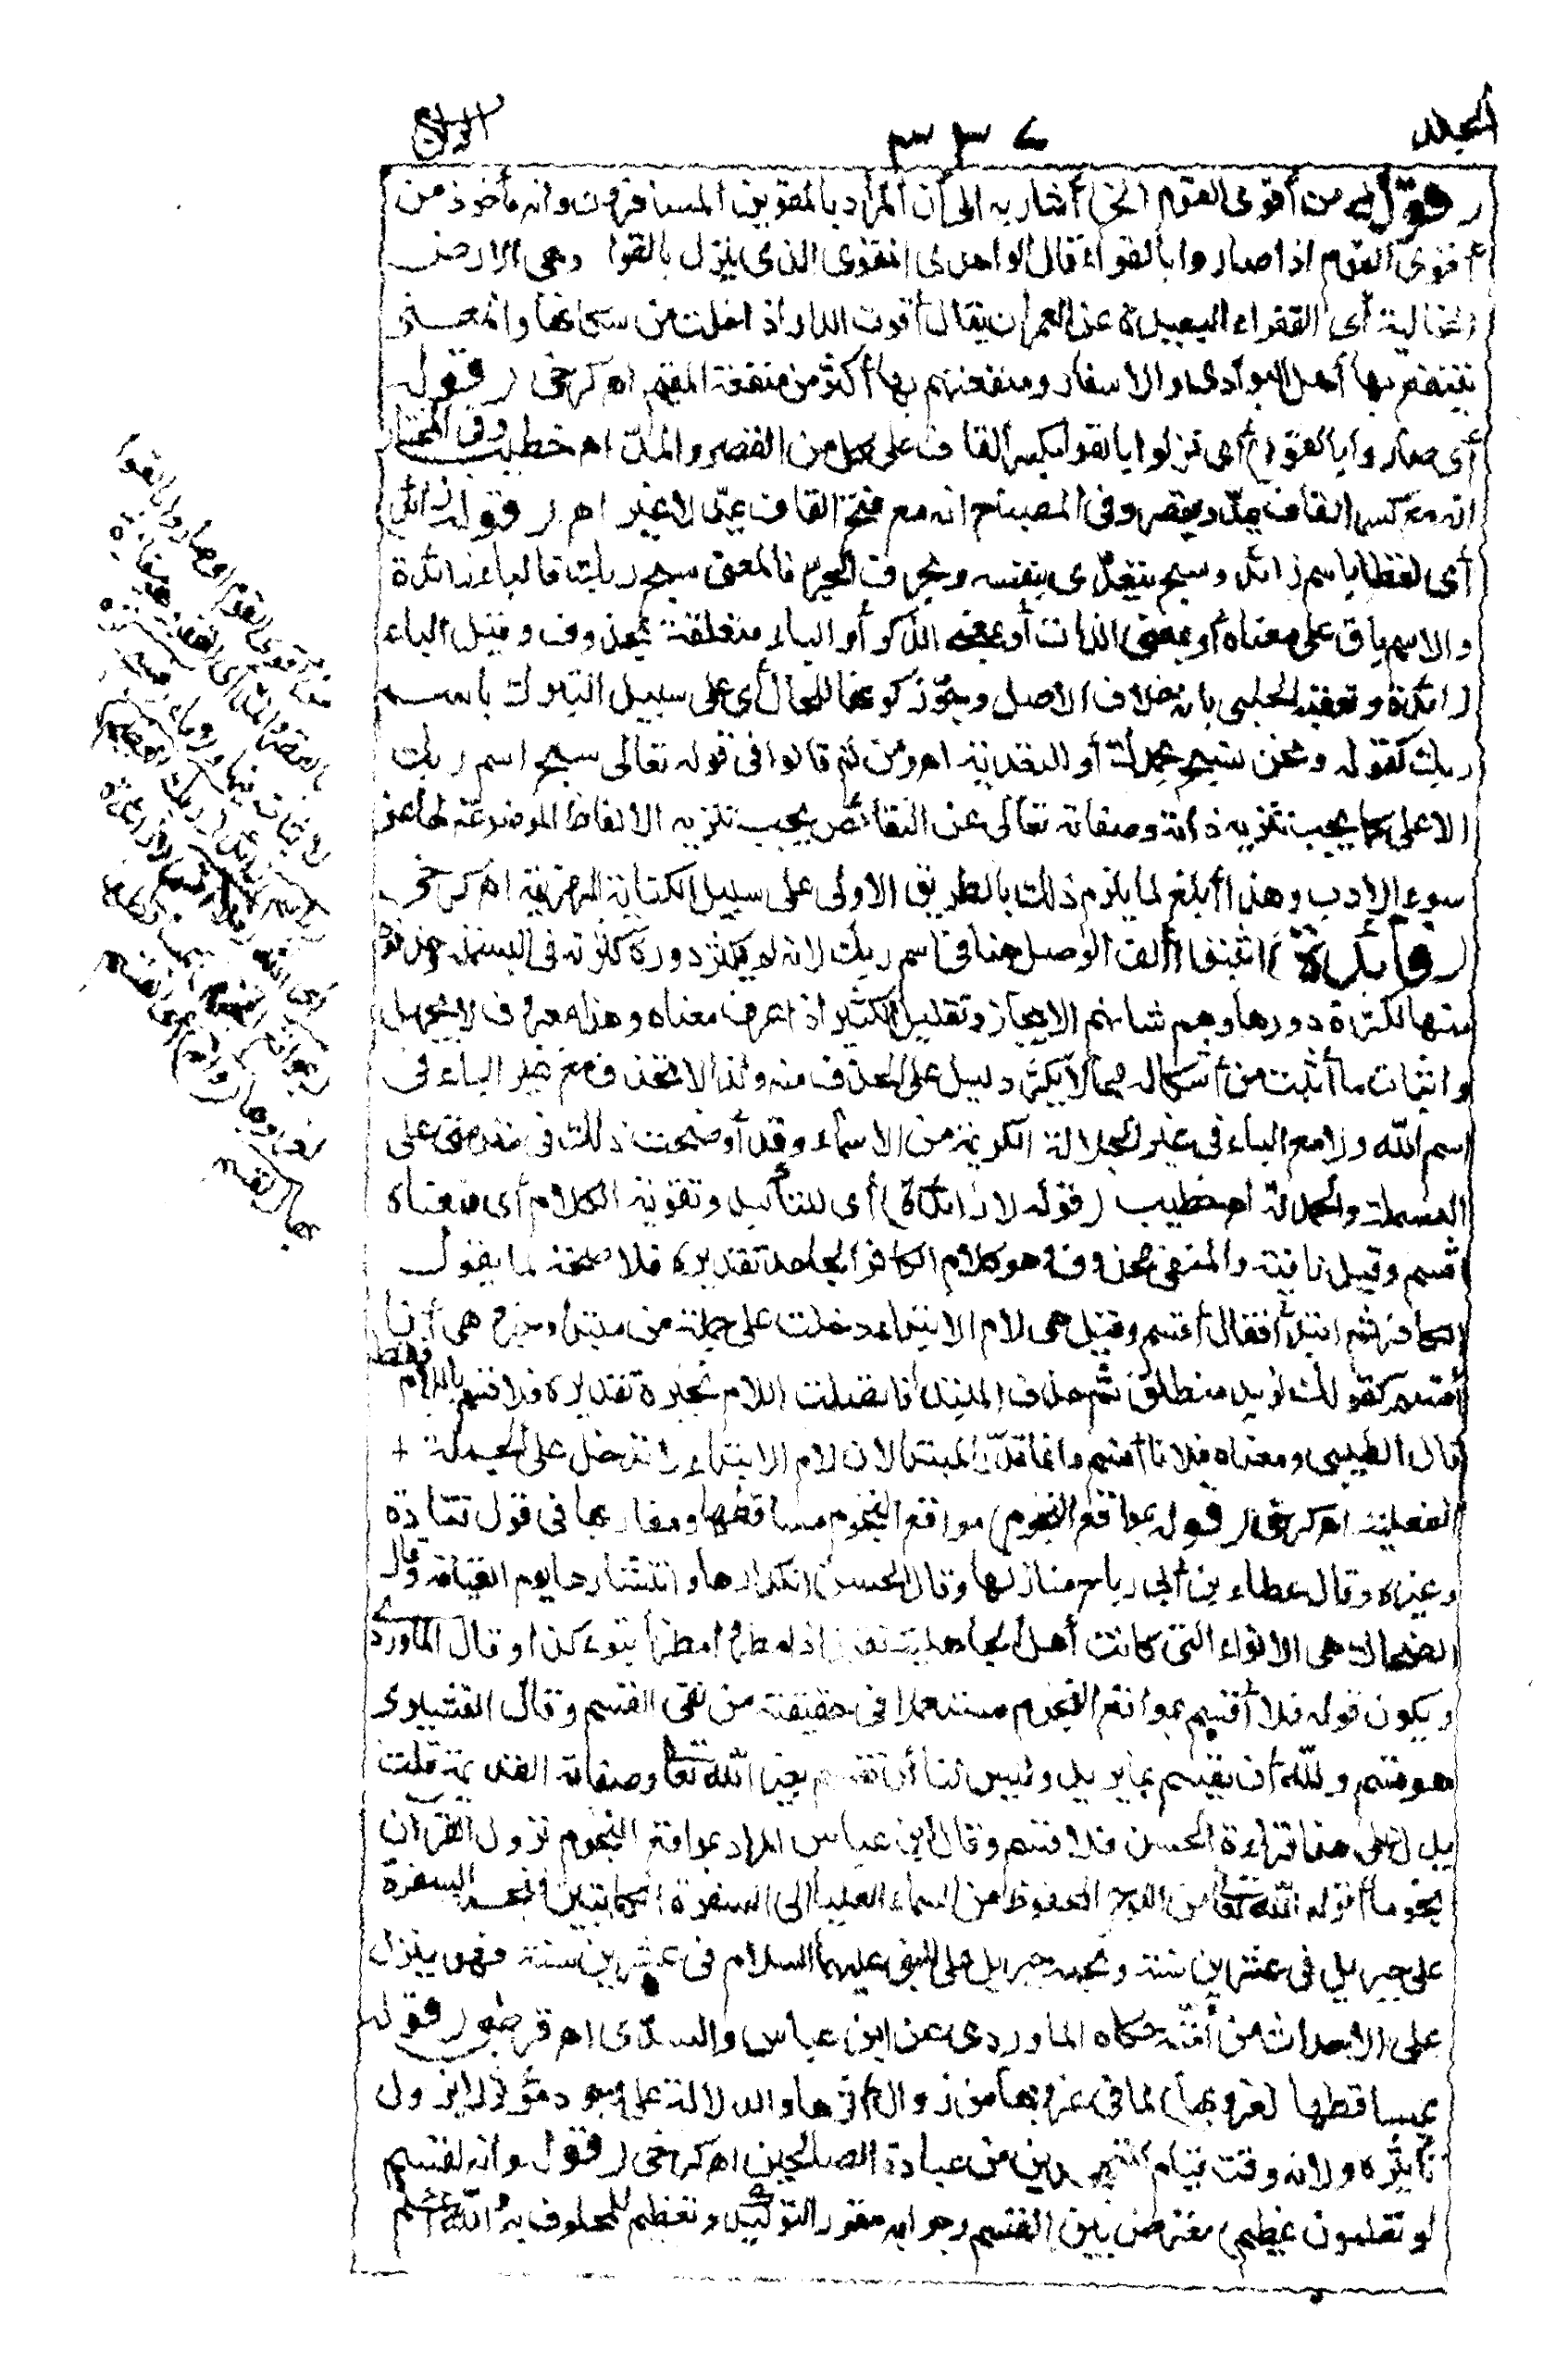 المجلد ٣٣٧ الرابع
(قوله من أقوى القوم الخ) أشار به الى أن المراد بالمقوين المسافرون وانه مأخوذ من
أقوى القوم اذا صاروا بالقواء قال الواحدى المقوى الذى ينزل بالقوا وهى الارض
الخالية أى القفراء البعيدة عن العمران يقال أقوت الدار اذا خلت من سكانها والمعنى
ينتفع بها أهل البوادى والاسفار ومنفعتهم بها أكثر من منفعة المقيم اه كرخى (قوله
أى صاروا بالقوا) أى نزلوا بالقوا بكسر القاف على كل من القصر والمد اه خطيب وفى المختار
انه مع كسر القاف يمد ويقصر وفى المصباح انه مع فتح القاف يمد لا غير اه (قوله زائد)
أى لفظ باسم زائد وسبح يتعدى بنفسه وبحرف الجر فالمعنى سبح ربك فالباء زائدة
والاسم باق على معناه أو بمعنى الذات أو بمعنى الذكر أو الباء متعلقة بمحذوف وقيل الباء
زائدة وتعقبه الحلبى بانه خلاف الاصل ويجوز كونها للحال أى على سبيل التبرك باسم
ربك كقوله ونحن نسبح بحمدك أو للتعدية اه ومن ثم قالوا فى قوله تعالى سبح اسم ربك
الاعلى كما يجب تنزيه ذاته وصفاته تعالى عن النقائص يجب تنزيه الالفاظ الموضوعة لها عن
سوء الادب وهذا أبلغ لما يلزم ذلك بالطريق الاولى على سبيل الكناية الرمزية اه كرخى
(فائدة) اثبتوا ألف الوصل هنا فى اسم ربك لانه لم يكثر دوره كثرته فى البسملة وحذفوه
منها لكثرة دورها وهم شانهم الايجاز وتقليل الكثير اذا عرف معناه وهذا معروف لا يجهل
واثبات ما أثبت من أشكاله مما لا يكثر دليل على الحذف منه ولذا لا تحذف مع غير الباء فى
اسم الله ولا مع الباء فى غير الجلالة الكريمة من الاسماء وقد أوضحت ذلك فى مقدمتى على
البسملة والحمدلة اه خطيب (قوله لا زائدة) أى للتأكيد وتقوية الكلام أى فمعناه
أقسم وقيل نافية والمنفى محذوف وهو كلام الكافر الجاحد تقديره فلا صحة لما يقول
الكافر ثم ابتدأ فقال أقسم وقيل هى لام الابتداء دخلت على جملة من مبتدا وخبر هى أنا
أقسم كقولك لزيد منطلق ثم حذف المبتدأ فاتصلت اللام بخبره تقديره فلأقسم باللام فقط
قال الطيبى ومعناه فلأنا أقسم وانما قدر المبتدا لان لام الابتداء لا تدخل على الجملة
الفعلية اه كرخى (قوله بمواقع النجوم) مواقع النجوم مساقطها ومغاربها فى قول قتادة
وغيره وقال عطاء بن أبى رباح منازلها وقال الحسن انكدارها وانتثارها يوم القيامة وقال
الضحاك هى الانواء التى كانت أهل الجاهلية تقول اذا مطروا مطرنا بنوء كذا وقال الماوردى
ويكون قوله فلا أقسم بمواقع النجوم مستعملا فى حقيقته من نفى القسم وقال القشيرى
هو قسم ولله أن يقسم بما يريد وليس لنا أن نقسم بغير الله تعا وصفاته القديمة قلت
يدل على هذا قراءة الحسن فلأقسم وقال ابن عباس المراد بمواقع النجوم نزول القرآن
نجوما أنزله الله تعا من اللوح المحفوظ من السماء العليا الى السفرة الكاتبين فنجمه السفرة
على جبريل فى عشرين سنة ونجمه جبريل على النبى عليهما السلام فى عشرين سنة فهو ينزل
على الاحداث من أمته حكاه الماوردى عن ابن عباس والسدى اه قرطبى (قوله
بمساقطها لغروبها) لما فى غروبها من زوال أثرها والدلالة على وجود مؤثر لا يزول
تأثيره ولانه وقت قيام المتهجدين من عبادة الصالحين اه كرخى (قوله وانه لقسم
لو تعلمون عظيم) معترض بين القسم وجوابه مقرر للتوكيد وتعظيم للمحلوف به الله أعلم